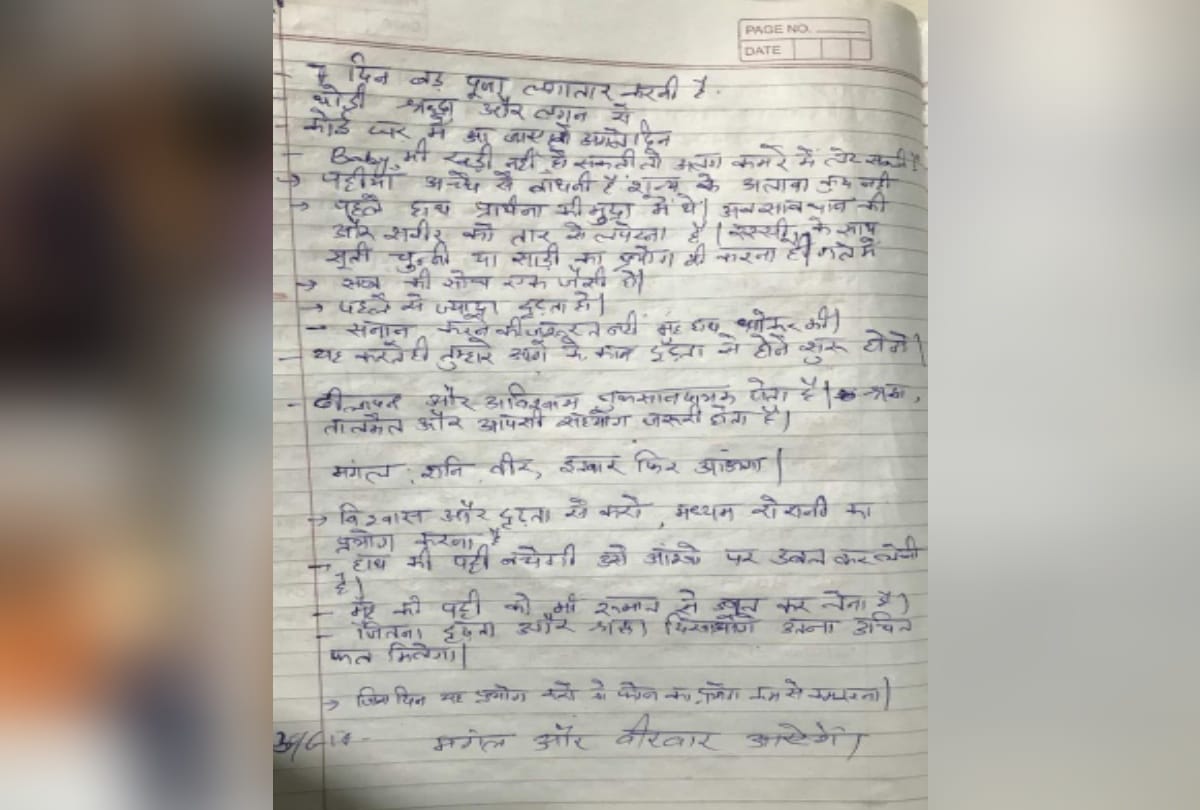 PAGE NO.
DATE
7 दिन बड़ पूजा लगातार करनी है.
थोड़ी श्रद्धा और लगन से
कोई घर में आ जाए तो अगले दिन
Baby भी खड़ी नहीं हो सकती तो अलग कमरे में लेट सकती है
→ पट्टीयां अच्छे से बांधनी है शून्य के अलावा कुछ नहीं
→ पहले हाथ प्रार्थना की मुद्रा में थे। अब सावधान की
और शरीर को तार से लपेटना है। रस्सी के साथ
सूती चुन्नी या साड़ी का प्रयोग भी करना है। गले में
→ सब की सोच एक जैसी हो।
→ पहले से ज्यादा दृढ़ता हो।
- सनान करने की जरूरत नहीं मुंह हाथ धोकर भी।
- यह करते ही तुम्हारे आगे के काम दृढ़ता से होने शुरू होंगे।
- ढीलापन और अविश्वास नुकसानदायक होता है।
तालमेल और आपसी सहयोग जरूरी होता है।
मंगल, शनि, वीर, इतवार फिर आऊंगा।
→ विश्वास और दृढ़ता से करो, मध्यम रोशनी का
प्रयोग करना है
→ हाथ की पट्टी बचेगी उसे आंखो पर डबल कर लेनी
है।
- मुंह की पट्टी को भी रूमाल से डबल कर लेना है।
- जितना दृढ़ता और श्रद्धा दिखाओगे उतना उचित
फल मिलेगा।
→ जिस दिन यह प्रयोग करो फोन का प्रयोग कम से कम करना।
मंगल और वीरवार आएंगे।